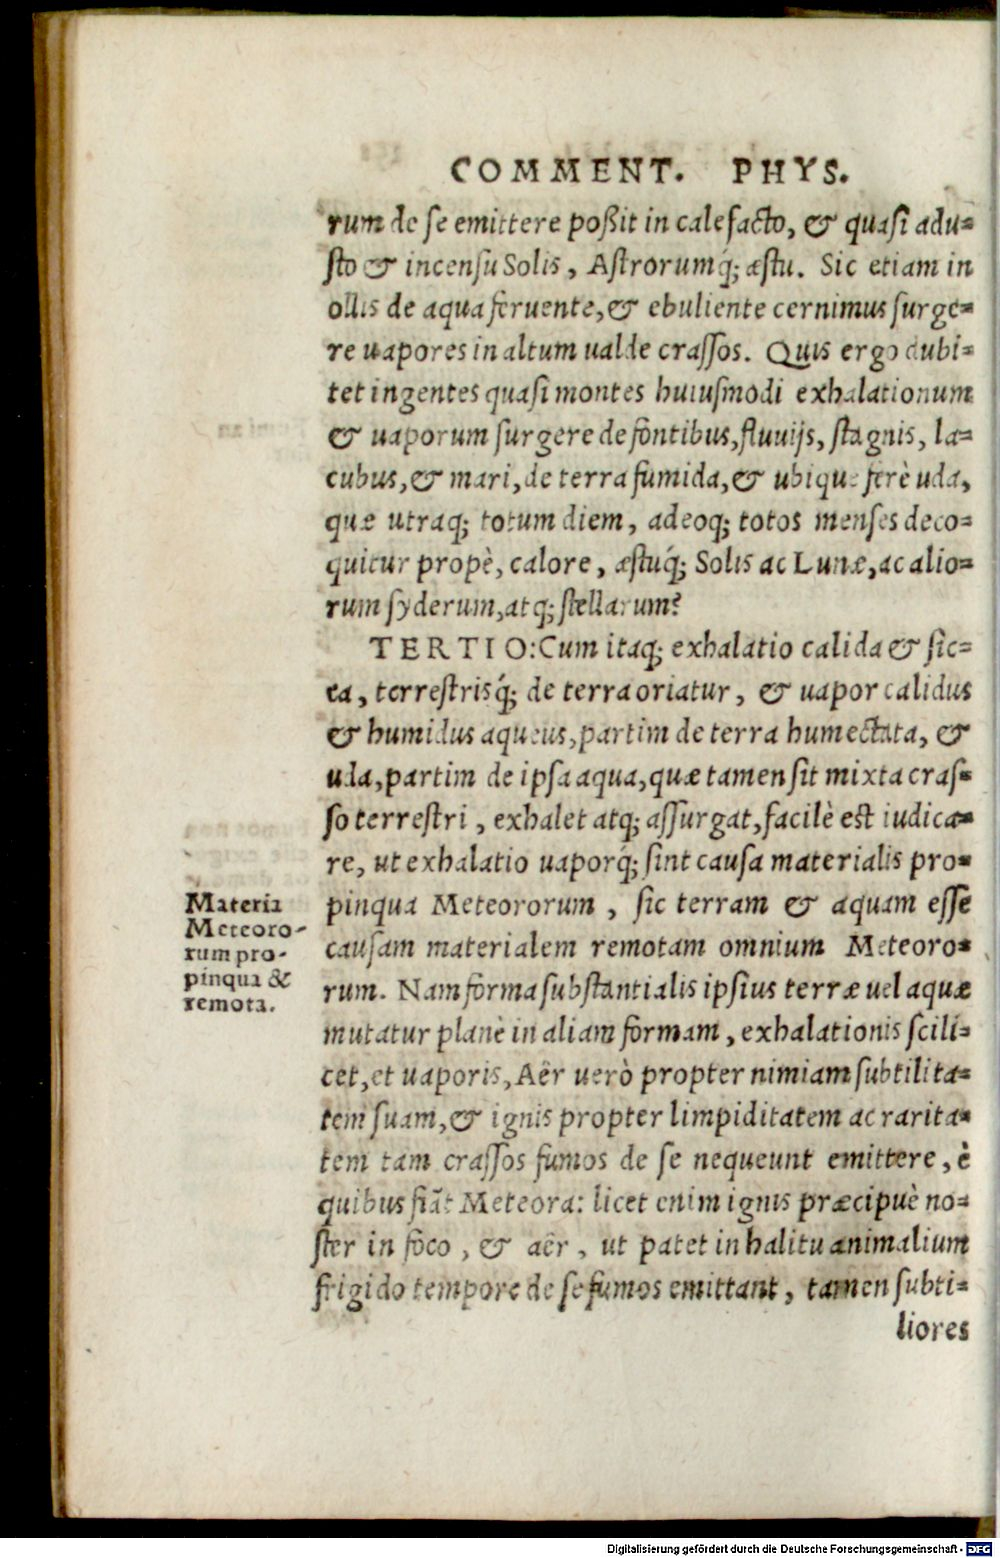 COMMENT. PHYS.
rum de se emittere poßit in calefacto, & quasi adu=
sto & incensu Solis, Astrorumq́; æstu. Sic etiam in
ollis de aqua feruente, & ebuliente cernimus surge=
re uapores in altum ualde crassos. Quis ergo dubi=
tet ingentes quasi montes huiusmodi exhalationum
& uaporum surgere de fontibus, fluuijs, stagnis, la=
cubus, & mari, de terra fumida, & ubique ferè uda,
quæ utraq; totum diem, adeoq; totos menses deco=
quitur propè, calore, æstuq́; Solis ac Lunæ, ac alio=
rum syderum, atq; stellarum?
TERTIO: Cum itaq; exhalatio calida & sic=
ca, terrestrisq́; de terra oriatur, & uapor calidus
& humidus aqueus, partim de terra humectata, &
uda, partim de ipsa aqua, quæ tamen sit mixta cras=
so terrestri, exhalet atq; assurgat, facilè est iudica=
re, ut exhalatio uaporq́; sint causa materialis pro=
pinqua Meteororum, sic terram & aquam esse
causam materialem remotam omnium Meteoro=
rum. Nam forma substantialis ipsius terræ uel aquæ
mutatur planè in aliam formam, exhalationis scili=
cet, et uaporis, Aêr uerò propter nimiam subtilita=
tem suam, & ignis propter limpiditatem ac rarita=
tem tam crassos fumos de se nequeunt emittere, è
quibus fiãt Meteora: licet enim ignis præcipuè no=
ster in foco, & aêr, ut patet in halitu animalium
frigido tempore de se fumos emittant, tamen subti=
liores
Materia
Meteoro-
rum pro-
pinqua &
remota.
Digitalisierung gefördert durch die Deutsche Forschungsgemeinschaft - DFG